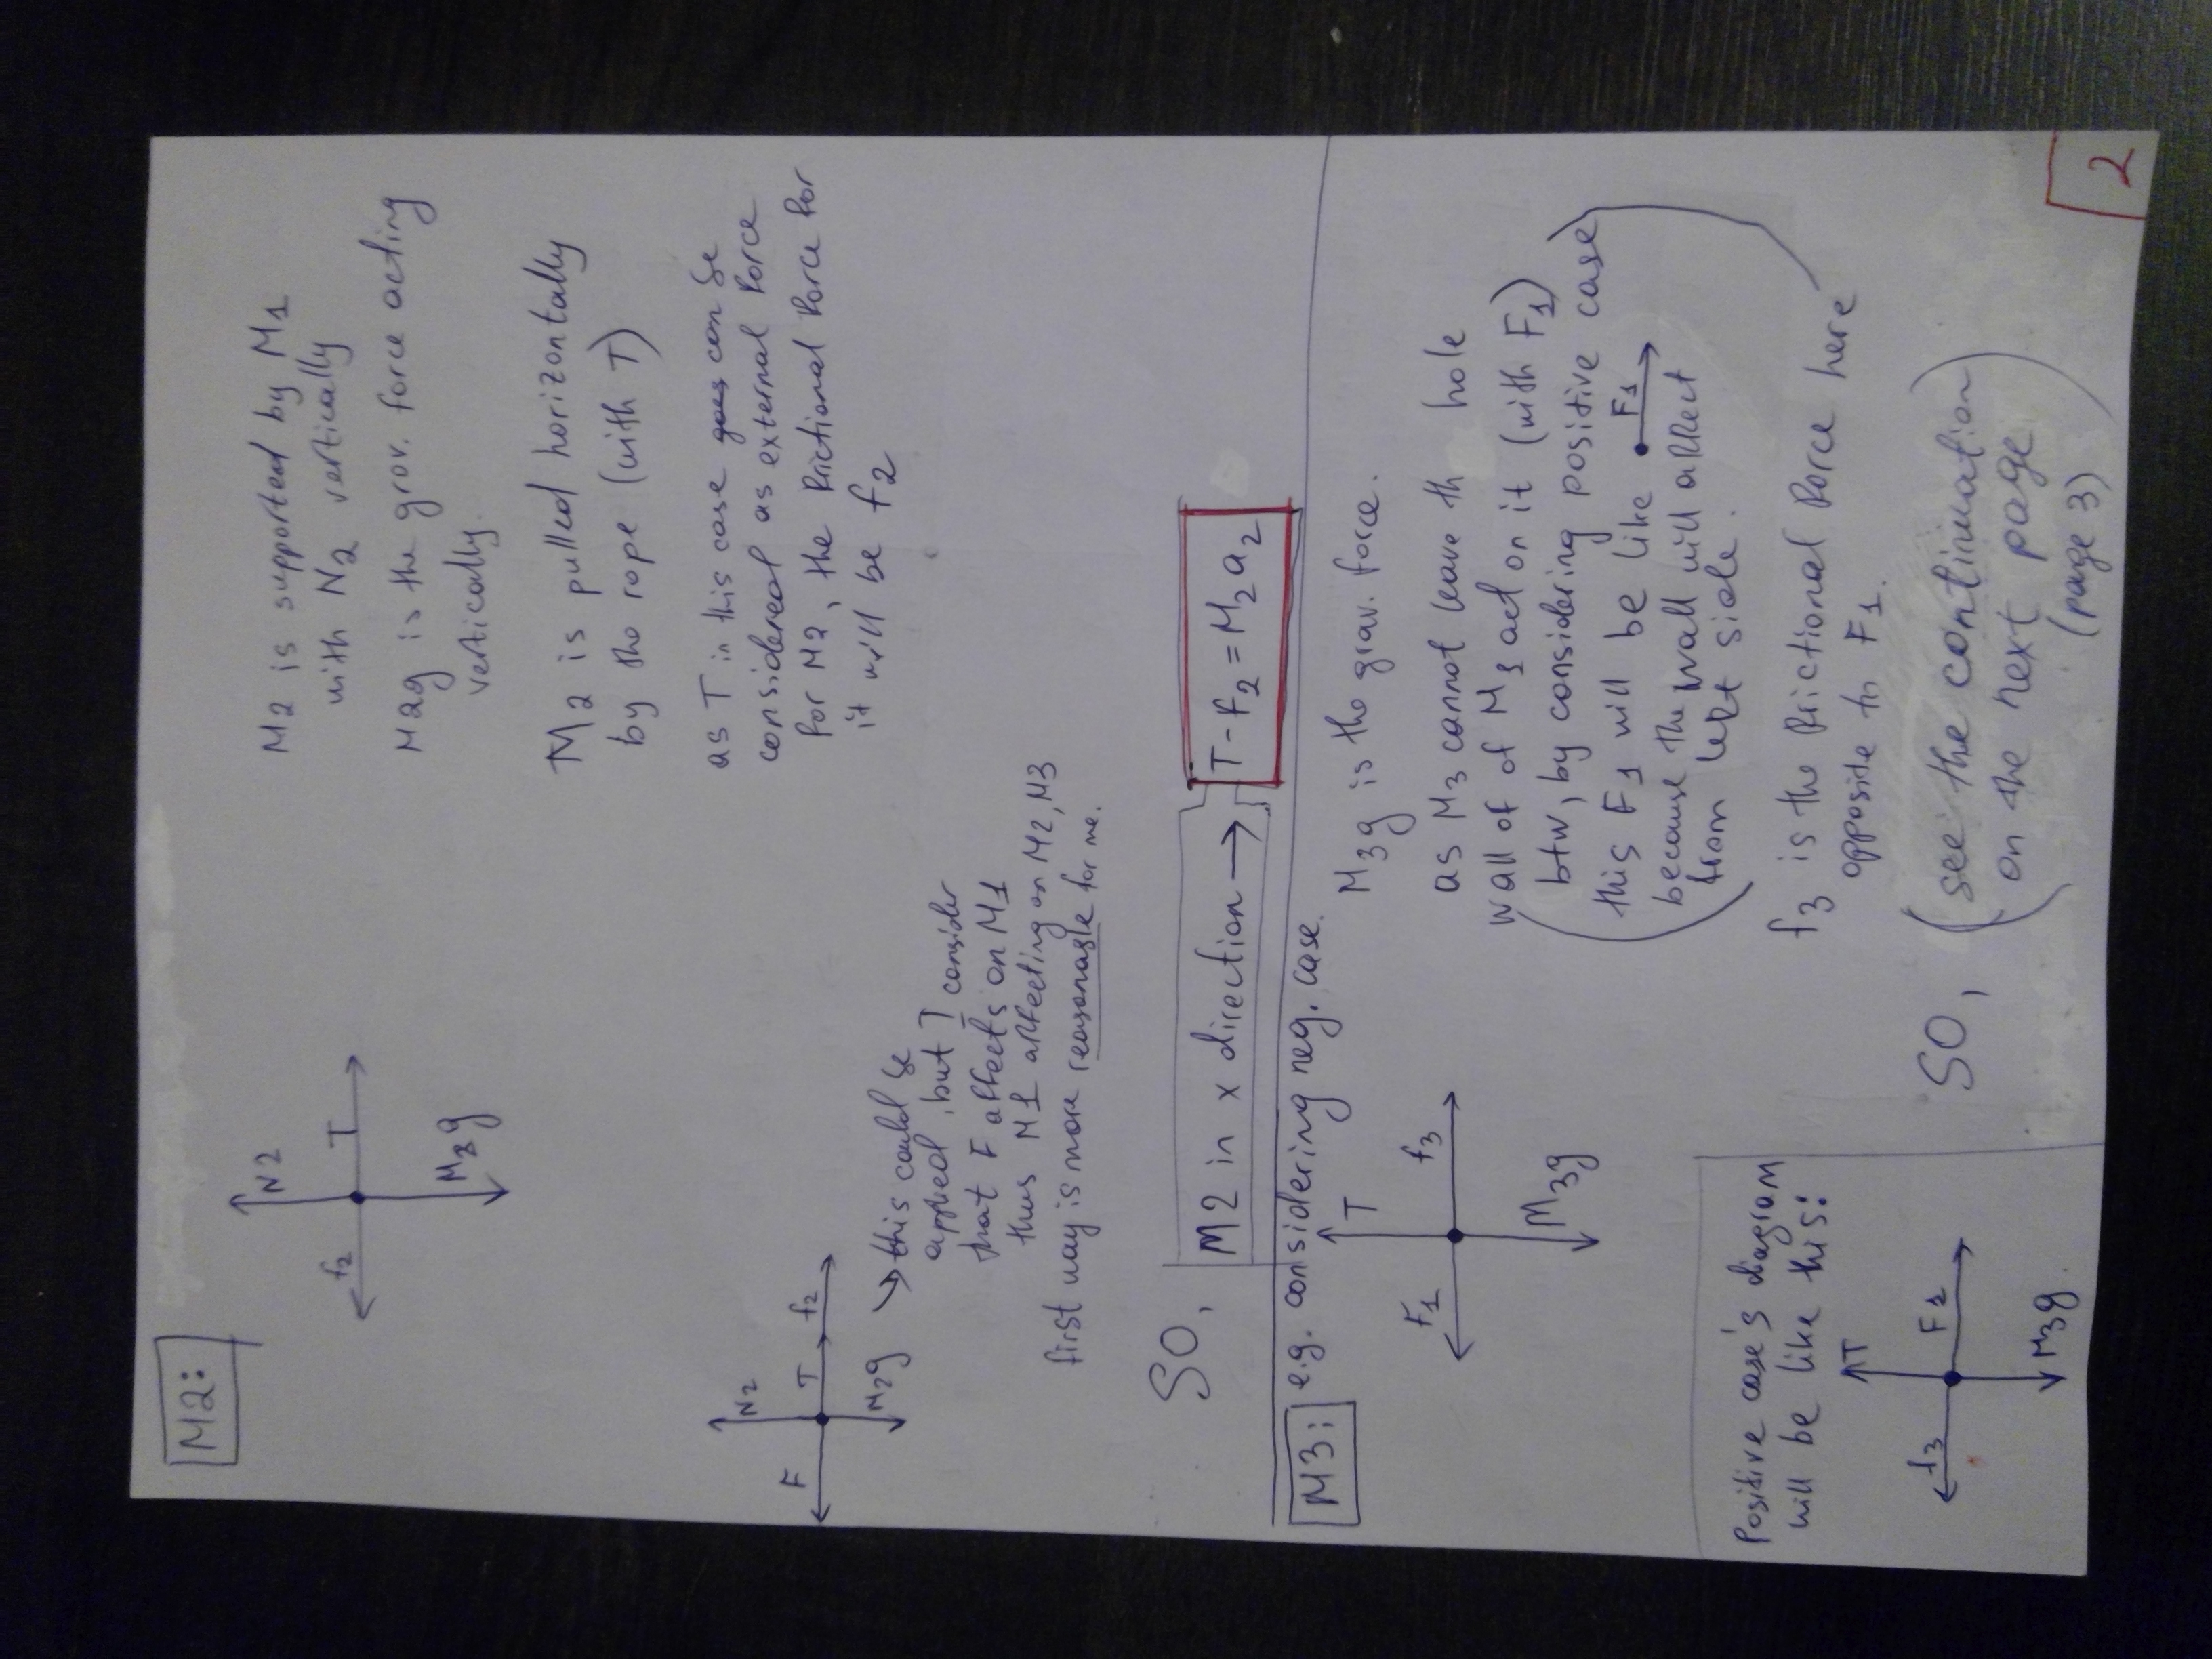 M2:
N2
f2
T
M2g
M2 is supported by M1
with N2 vertically
M2g is the grav. force acting
vertically.
M2 is pulled horizontally
by the rope (with T)
as T in this case goes can be
considered as external force
for M2, the frictional force for
it will be f2
N2
F
T
f2
M2g
this could be
applied, but I consider
that F affects on M1
thus M1 affecting on M2, M3
first way is more reasonable for me.
SO,
M2 in x direction → T - F2 = M2 a2
M3: e.g. considering neg. case.
T
F1
f3
M3g
M3g is the grav. force.
as M3 cannot leave th hole
wall of of M1 act on it (with F1)
btw, by considering positive case
this F1 will be like F1
because the wall will affect
from left side.
f3 is the frictional force here
opposite to F1.
Positive case's diagram
will be like this:
T
f3
F1
M3g.
SO, (see the continuation
on the next page
(page 3)
2